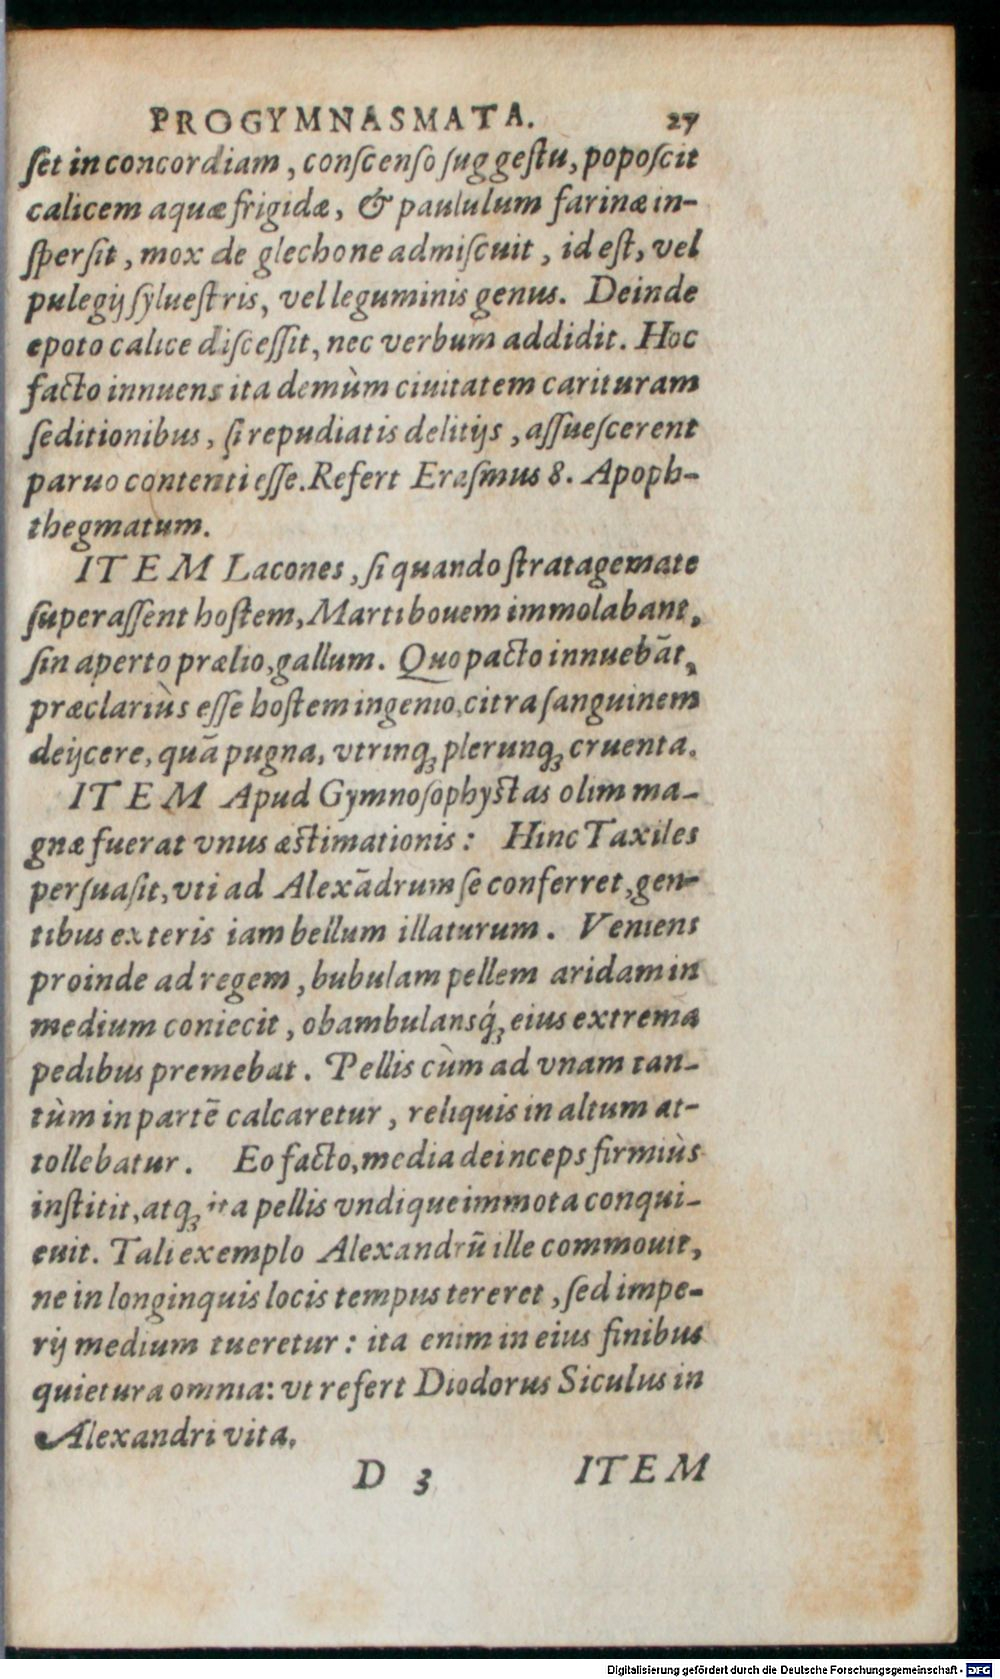 PROGYMNASMATA. 27
ſet in concordiam, conſcenſo ſuggeſtu, popoſcit
calicem aquæ frigidæ, & paululum farinæ in-
ſperſit, mox de glechone admiſcuit, id eſt, vel
pulegij ſylueſtris, vel leguminis genus. Deinde
epoto calice diſceſſit, nec verbum addidit. Hoc
facto innuens ita demùm ciuitatem carituram
ſeditionibus, ſi repudiatis delitijs, aſſueſcerent
paruo contenti eſſe. Refert Eraſmus 8. Apoph-
thegmatum.
ITEM Lacones, ſi quando ſtratagemate
ſuperaſſent hoſtem, Marti bouem immolabant,
ſin aperto prælio, gallum. Quo pacto innuebāt,
præclariùs eſſe hoſtem ingenio, citra ſanguinem
deijcere, quā pugna, vtrinq; plerunq; cruenta.
ITEM Apud Gymnoſophyſtas olim ma-
gnæ fuerat vnus æſtimationis: Hinc Taxiles
perſuaſit, vti ad Alexādrum ſe conferret, gen-
tibus exteris iam bellum illaturum. Veniens
proinde ad regem, bubulam pellem aridam in
medium coniecit, obambulansq́; eius extrema
pedibus premebat. Pellis cùm ad vnam tan-
tùm in partē calcaretur, reliquis in altum at-
tollebatur. Eo facto, media deinceps firmiùs
inſtitit, atq; ita pellis vndique immota conqui-
euit. Tali exemplo Alexandrū ille commouit,
ne in longinquis locis tempus tereret, ſed impe-
rij medium tueretur: ita enim in eius finibus
quietura omnia: vt refert Diodorus Siculus in
Alexandri vita.
D 3 ITEM
Digitalisierung gefördert durch die Deutsche Forschungsgemeinschaft - DFG